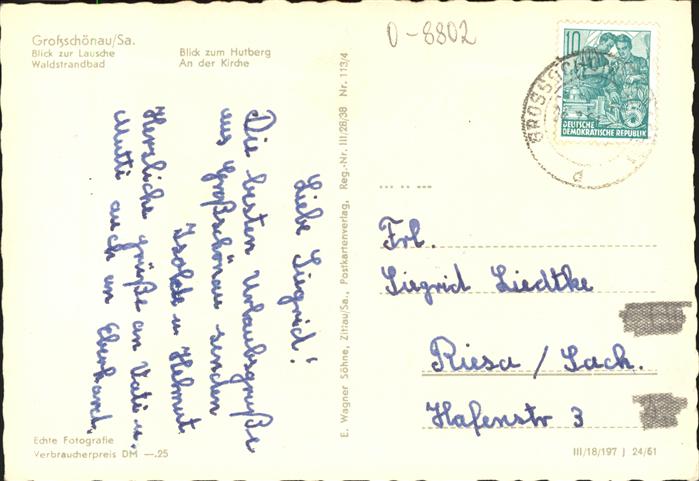 Großschönau/Sa.
Blick zur Lausche
Waldstrandbad
Blick zum Hutberg
An der Kirche
O-8802
10
DEUTSCHE
DEMOKRATISCHE REPUBLIK
GROSSSCHÖNAU
a
Liebe Siegrid!
Die besten Urlaubsgrüße
aus Großschönau senden
Isolde u. Helmut.
Herzliche Grüße an Vati u.
Mutti auch an Eberhard.
E. Wagner Söhne, Zittau/Sa., Postkartenverlag, Reg.-Nr. III/28/38 Nr. 113/4
Frl.
Siegrid Liedtke
Riesa / Sach.
Hafenstr 3
Echte Fotografie
Verbraucherpreis DM —.25
III/18/197 J 24/61